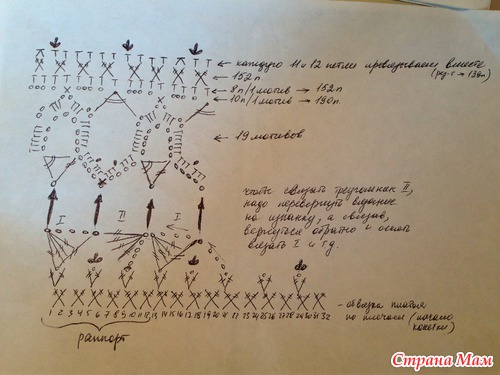 каждую 11 и 12 петлю провязываем вместе
(рез-т → 139п)
152 п.
8п/1 мотив → 152п
10п/1 мотив → 190п.
19 мотивов
I II I
чтобы связать треугольник II,
надо перевернуть вязание
на изнанку, а связав,
вернуться обратно и опять
вязать I и т.д.
- обвязка платья
по плечам (начало
кокетки)
1 2 3 4 5 6 7 8 9 10 11 12 13 14 15 16 17 18 19 20 21 22 23 24 25 26 27 28 29 30 31 32
раппорт
Страна Мам